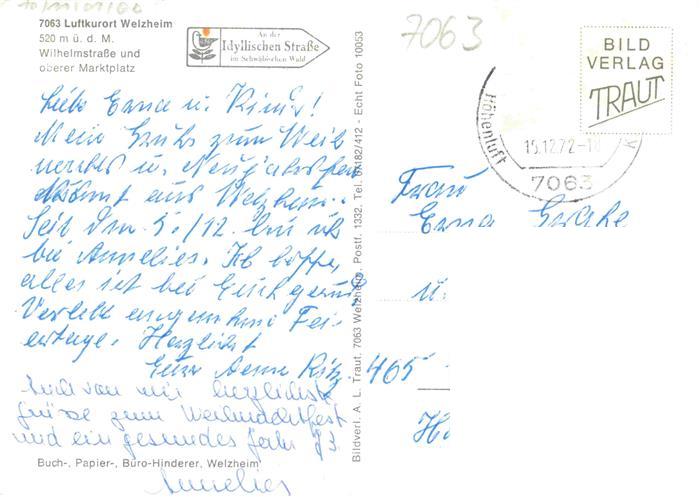 7063 Luftkurort Welzheim
520 m ü. d. M.
Wilhelmstraße und
oberer Marktplatz
An der
Idyllischen Straße
im Schwäbischen Wald
7063
BILD
VERLAG
TRAUT
Höhenluft
15.12.72-18
7063
Liebe Erna u. Kinder!
Mein Gruß zum Weih
nachts u. Neujahrsfest
kommt aus Welzheim.
Seit dem 5./12. bin ich
bei Annelies. Ich hoffe,
alles ist bei Euch gesund
Verlebt angenehme Fei-
ertage. Herzlichst
Eure
Auch von mir herzlichste
Grüße zum Weihnachtsfest
und ein gesundes Jahr 73.
Annelies
Frau
Erna
465
Bildverl. A. L. Traut, 7063 Welzheim, Postf. 1332, Tel. 07182/412 - Echt Foto 10053
Buch-, Papier-, Büro-Hinderer, Welzheim